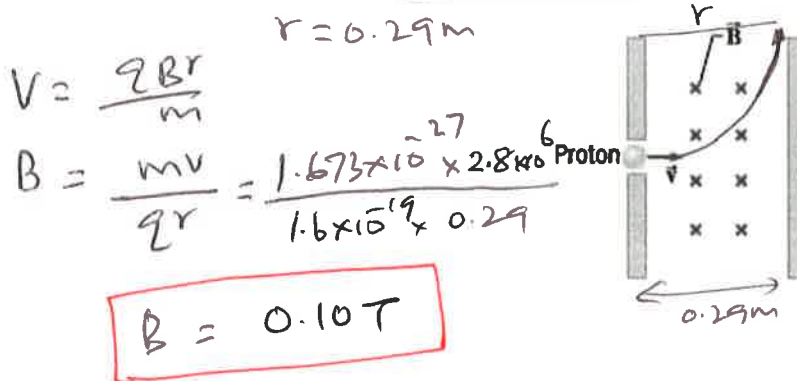 r = 0.29m
V = qBr / m
B = mv / qr = 1.673×10⁻²⁷ × 2.8×10⁶ / 1.6×10⁻¹⁹ × 0.29
B = 0.10T
r
B⃗
× ×
× ×
Proton
v⃗
× ×
× ×
0.29m